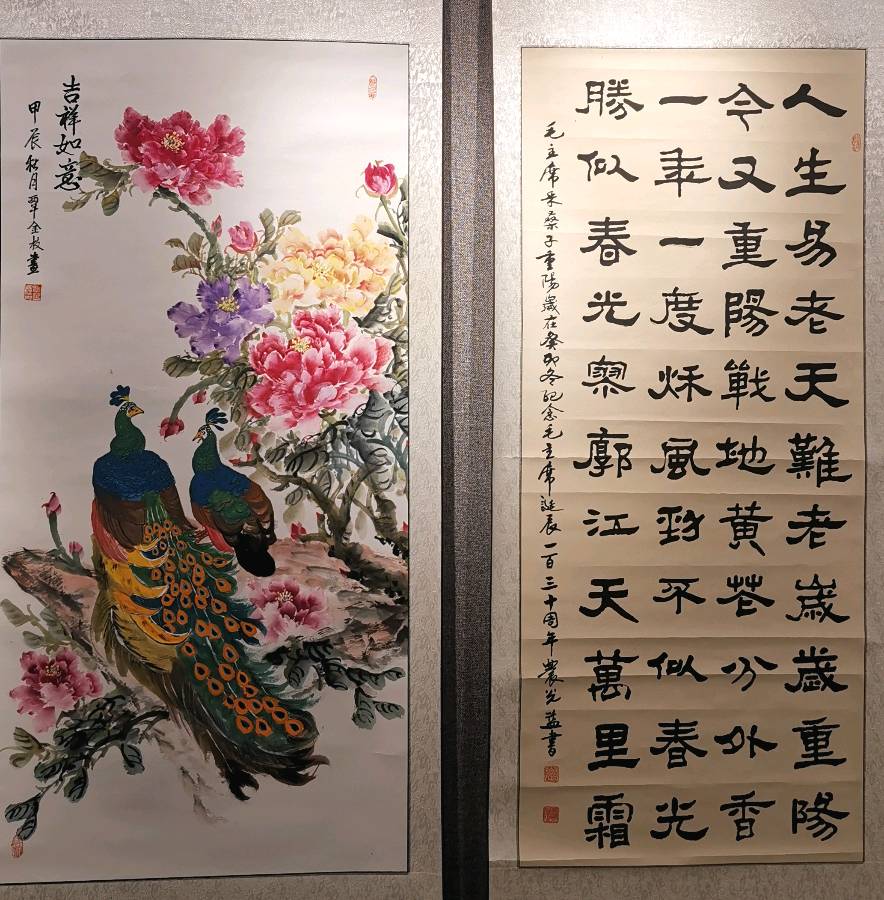 人生易老天難老歲歲重陽
今又重陽戰地黃花分外香
一年一度秋風勁不似春光
勝似春光寥廓江天萬里霜
毛主席采桑子重陽歲在癸卯冬紀念毛主席誕辰一百三十周年農光益書
吉祥如意
甲辰秋月覃金枚畫